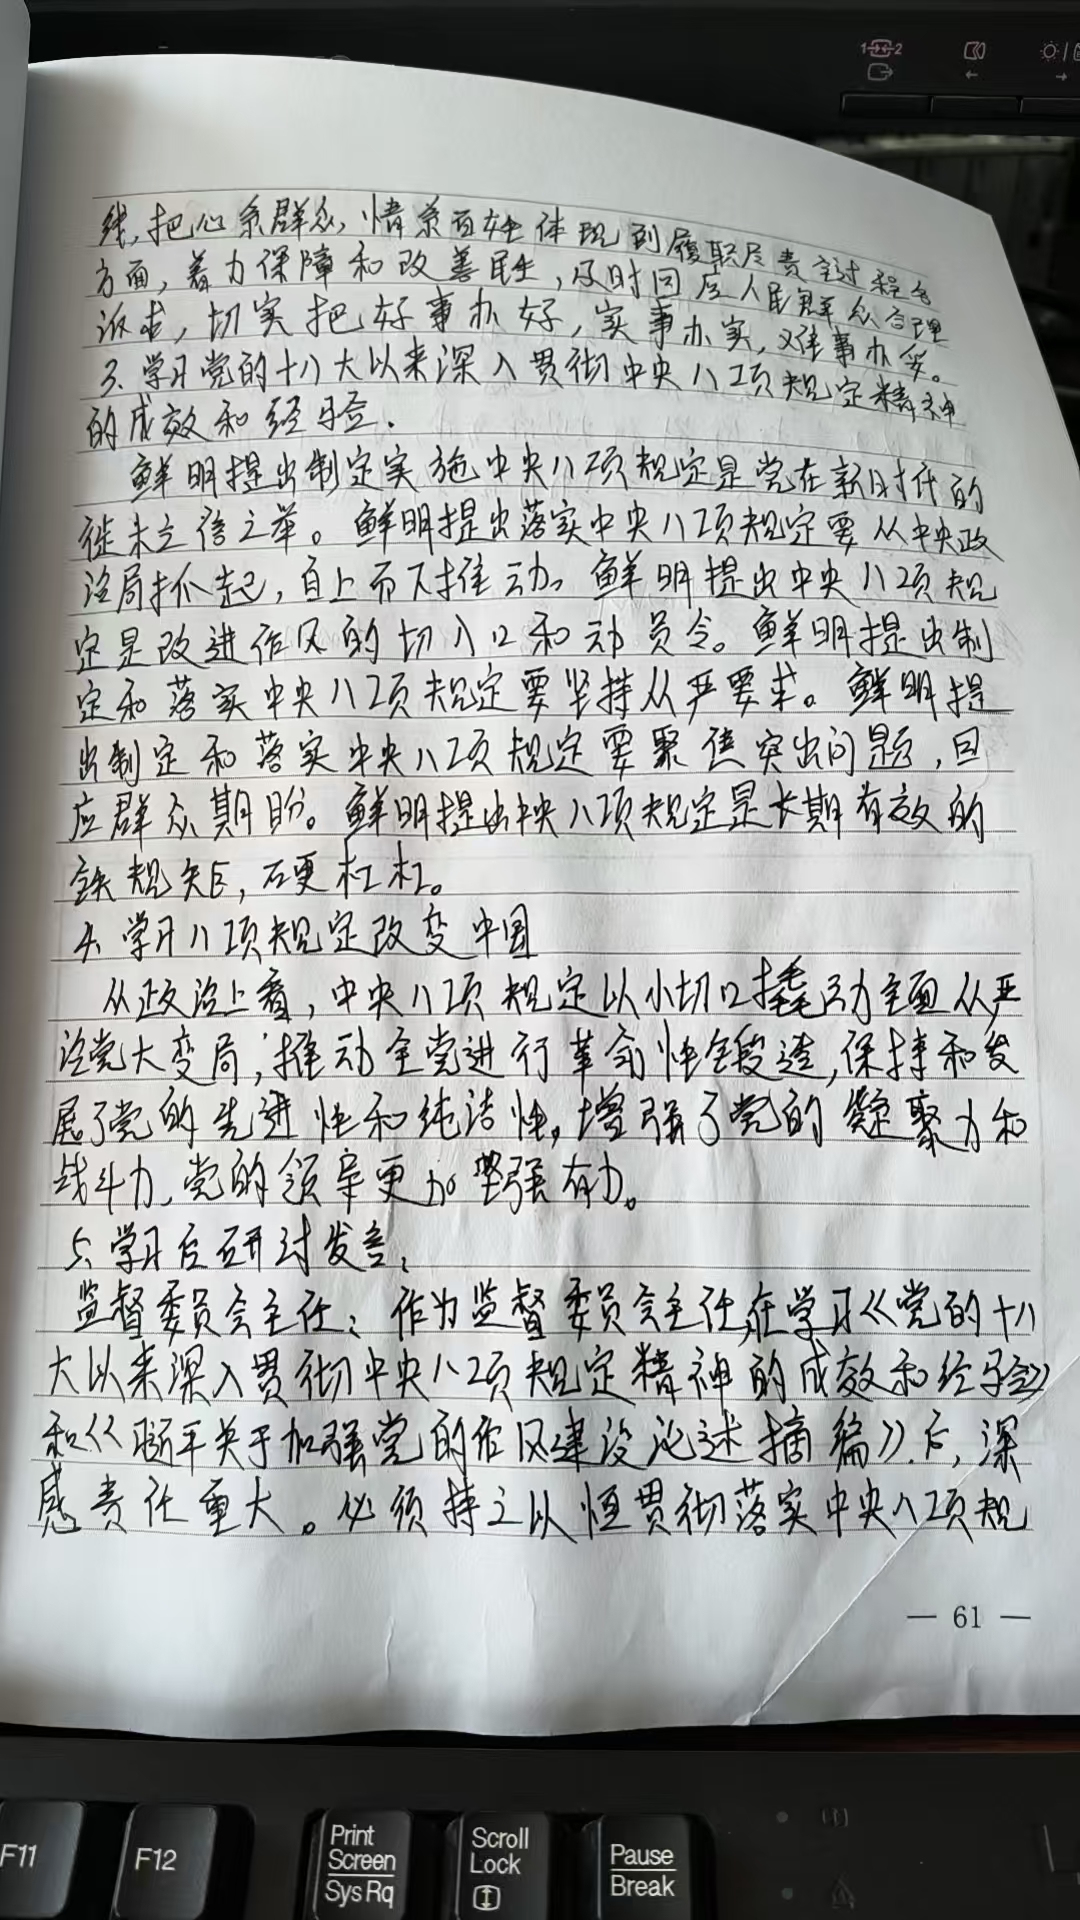 线,把心系群众,情系百姓体现到履职尽责全过程各
方面,着力保障和改善民生,及时回应人民群众合理
诉求,切实把好事办好,实事办实,难事办妥。
3、学习党的十八大以来深入贯彻中央八项规定精神
的成效和经验.
鲜明提出制定实施中央八项规定是党在新时代的
徙木立信之举。鲜明提出落实中央八项规定要从中央政
治局抓起,自上而下推动。鲜明提出中央八项规
定是改进作风的切入口和动员令。鲜明提出制
定和落实中央八项规定要坚持从严要求。鲜明提
出制定和落实中央八项规定要聚焦突出问题,回
应群众期盼。鲜明提出中央八项规定是长期有效的
铁规矩,硬杠杠。
4、学习八项规定改变中国
从政治上看,中央八项规定以小切口撬动全面从严
治党大变局,推动全党进行革命性锻造,保持和发
展了党的先进性和纯洁性,增强了党的凝聚力和
战斗力,党的领导更加坚强有力。
5、学习后研讨发言:
监督委员会主任:作为监督委员会主任,在学习《党的十八
大以来深入贯彻中央八项规定精神的成效和经验》
和《平关于加强党的作风建设论述摘编》后,深
感责任重大。必须持之以恒贯彻落实中央八项规
— 61 —
F11
F12
Print
Screen
SysRq
Scroll
Lock
Pause
Break